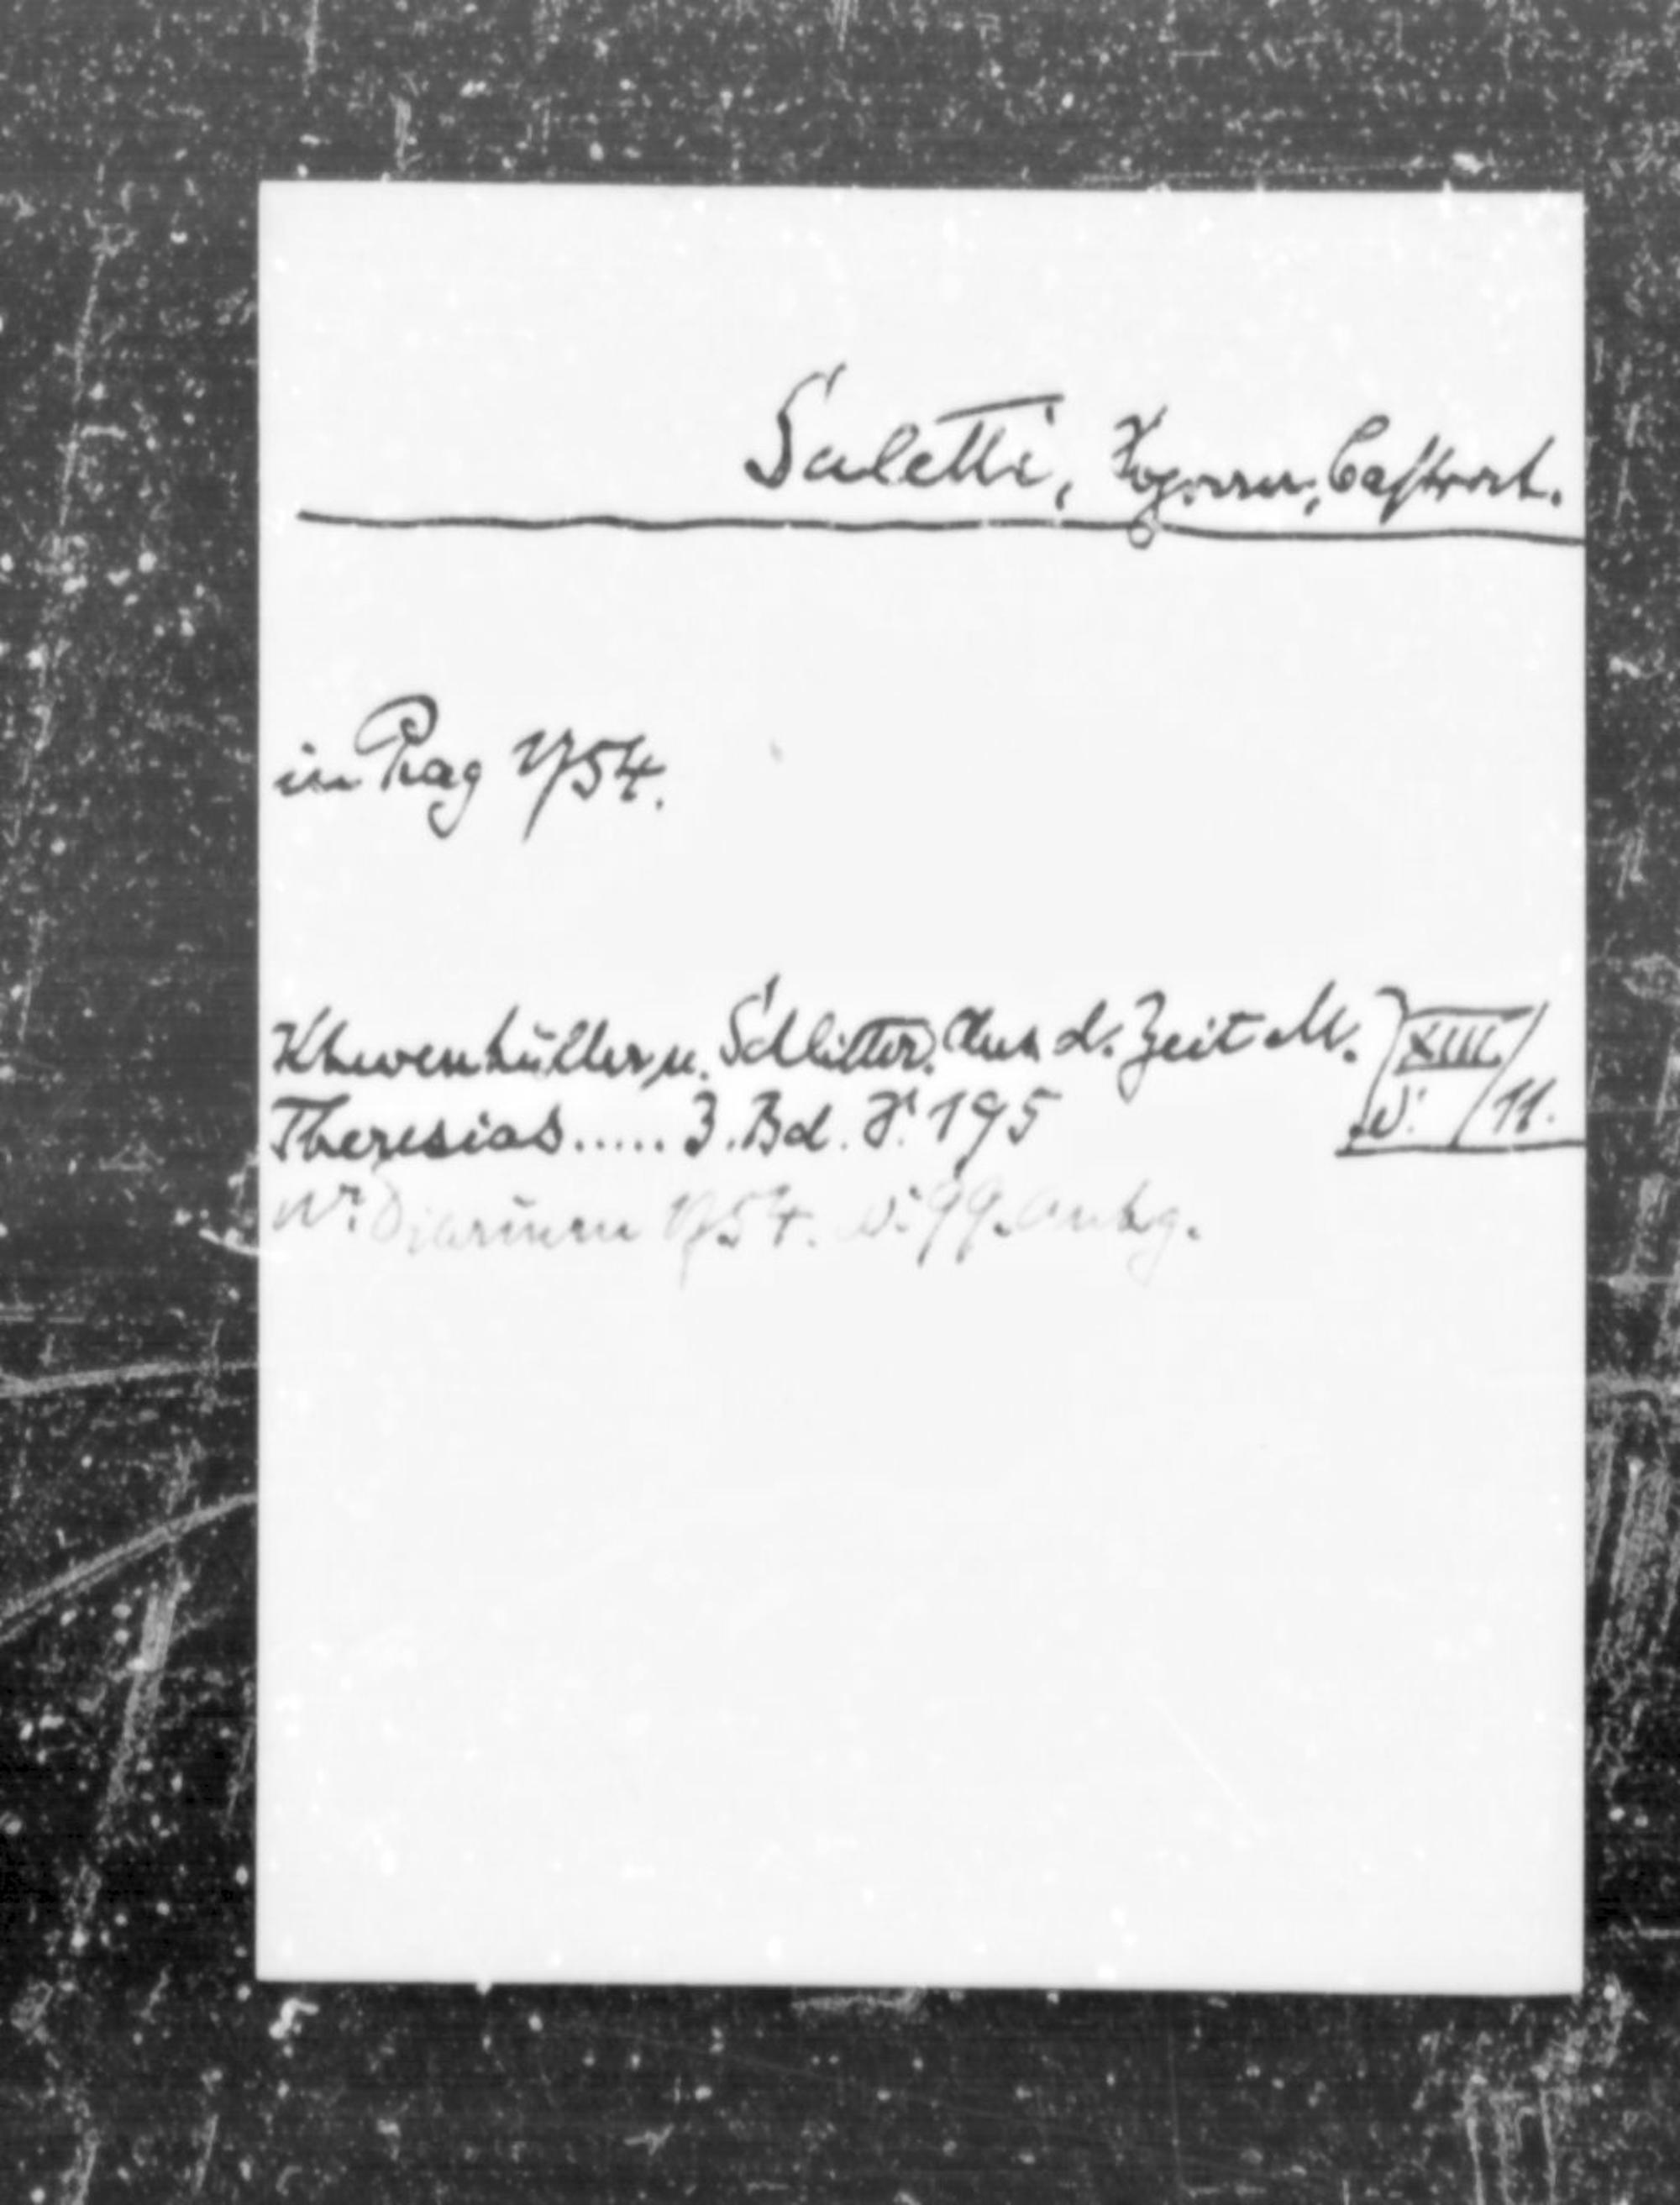 Saletti, Castrat.
in Prag 1754.
Khevenhüller u. Schlitter. Aus d. Zeit M.
Theresias ..... 3. Bd. S. 195
XIII/11.
Wr. Diarium 1754. N. 99. Anhg.